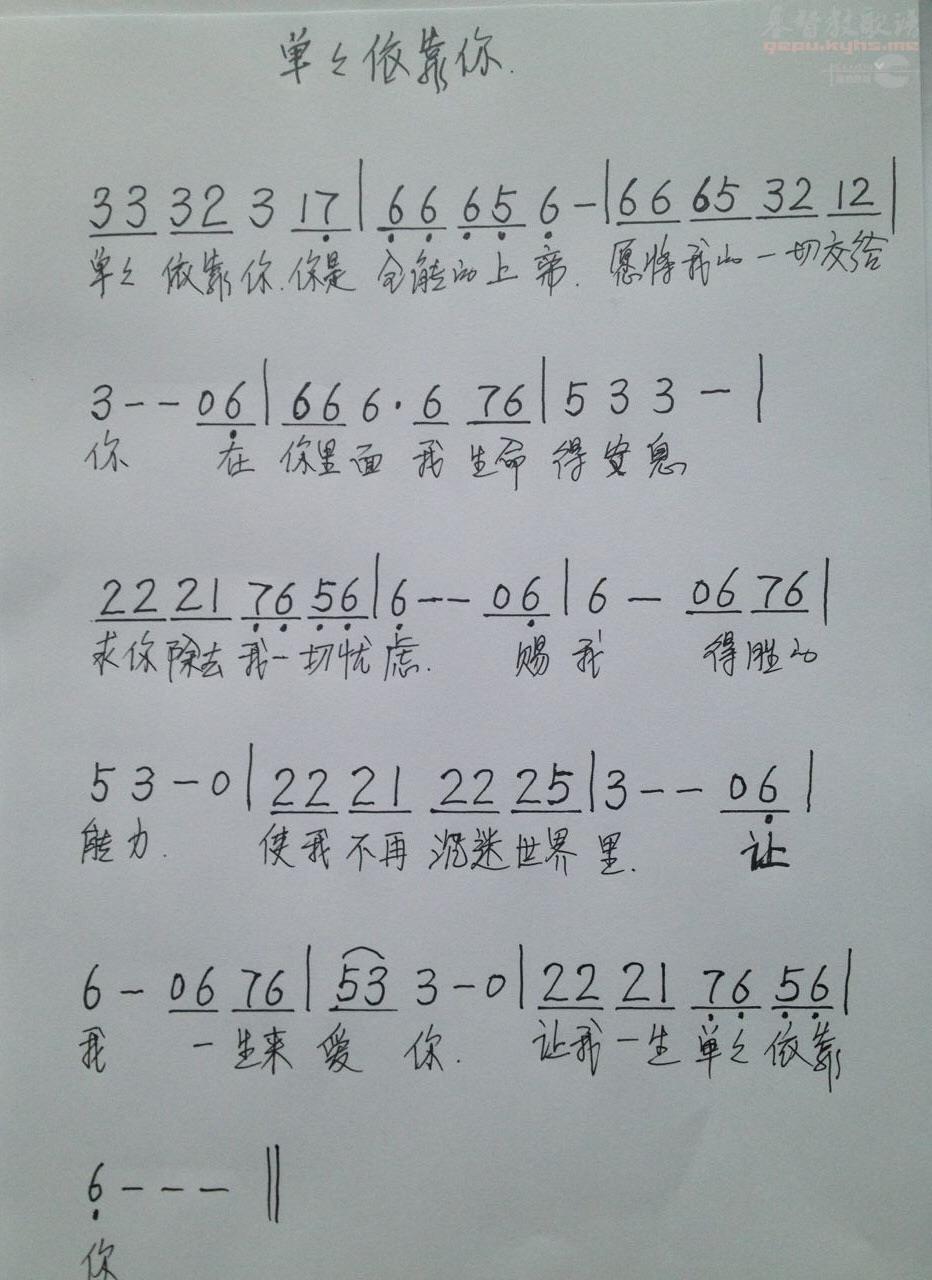 基督教歌谱
gepu.kyhs.me
单々依靠你.
33 32 3 17 | 66 65 6 - | 66 65 32 12 |
单々 依靠你.你是 全能的上帝. 愿将我的一切交给
3 - - 06 | 66 6· 6 76 | 5 3 3 - |
你 在 你里面 我 生命 得安息
22 21 76 56 | 6 - - 06 | 6 - 06 76 |
求你除去我一切忧虑. 赐我 得胜的
5 3 - 0 | 22 21 22 25 | 3 - - 06 |
能力. 使我不再沉迷世界里. 让
6 - 06 76 | 53 3 - 0 | 22 21 76 56 |
我 一生来爱 你. 让我一生单々依靠
6 - - - ‖
你